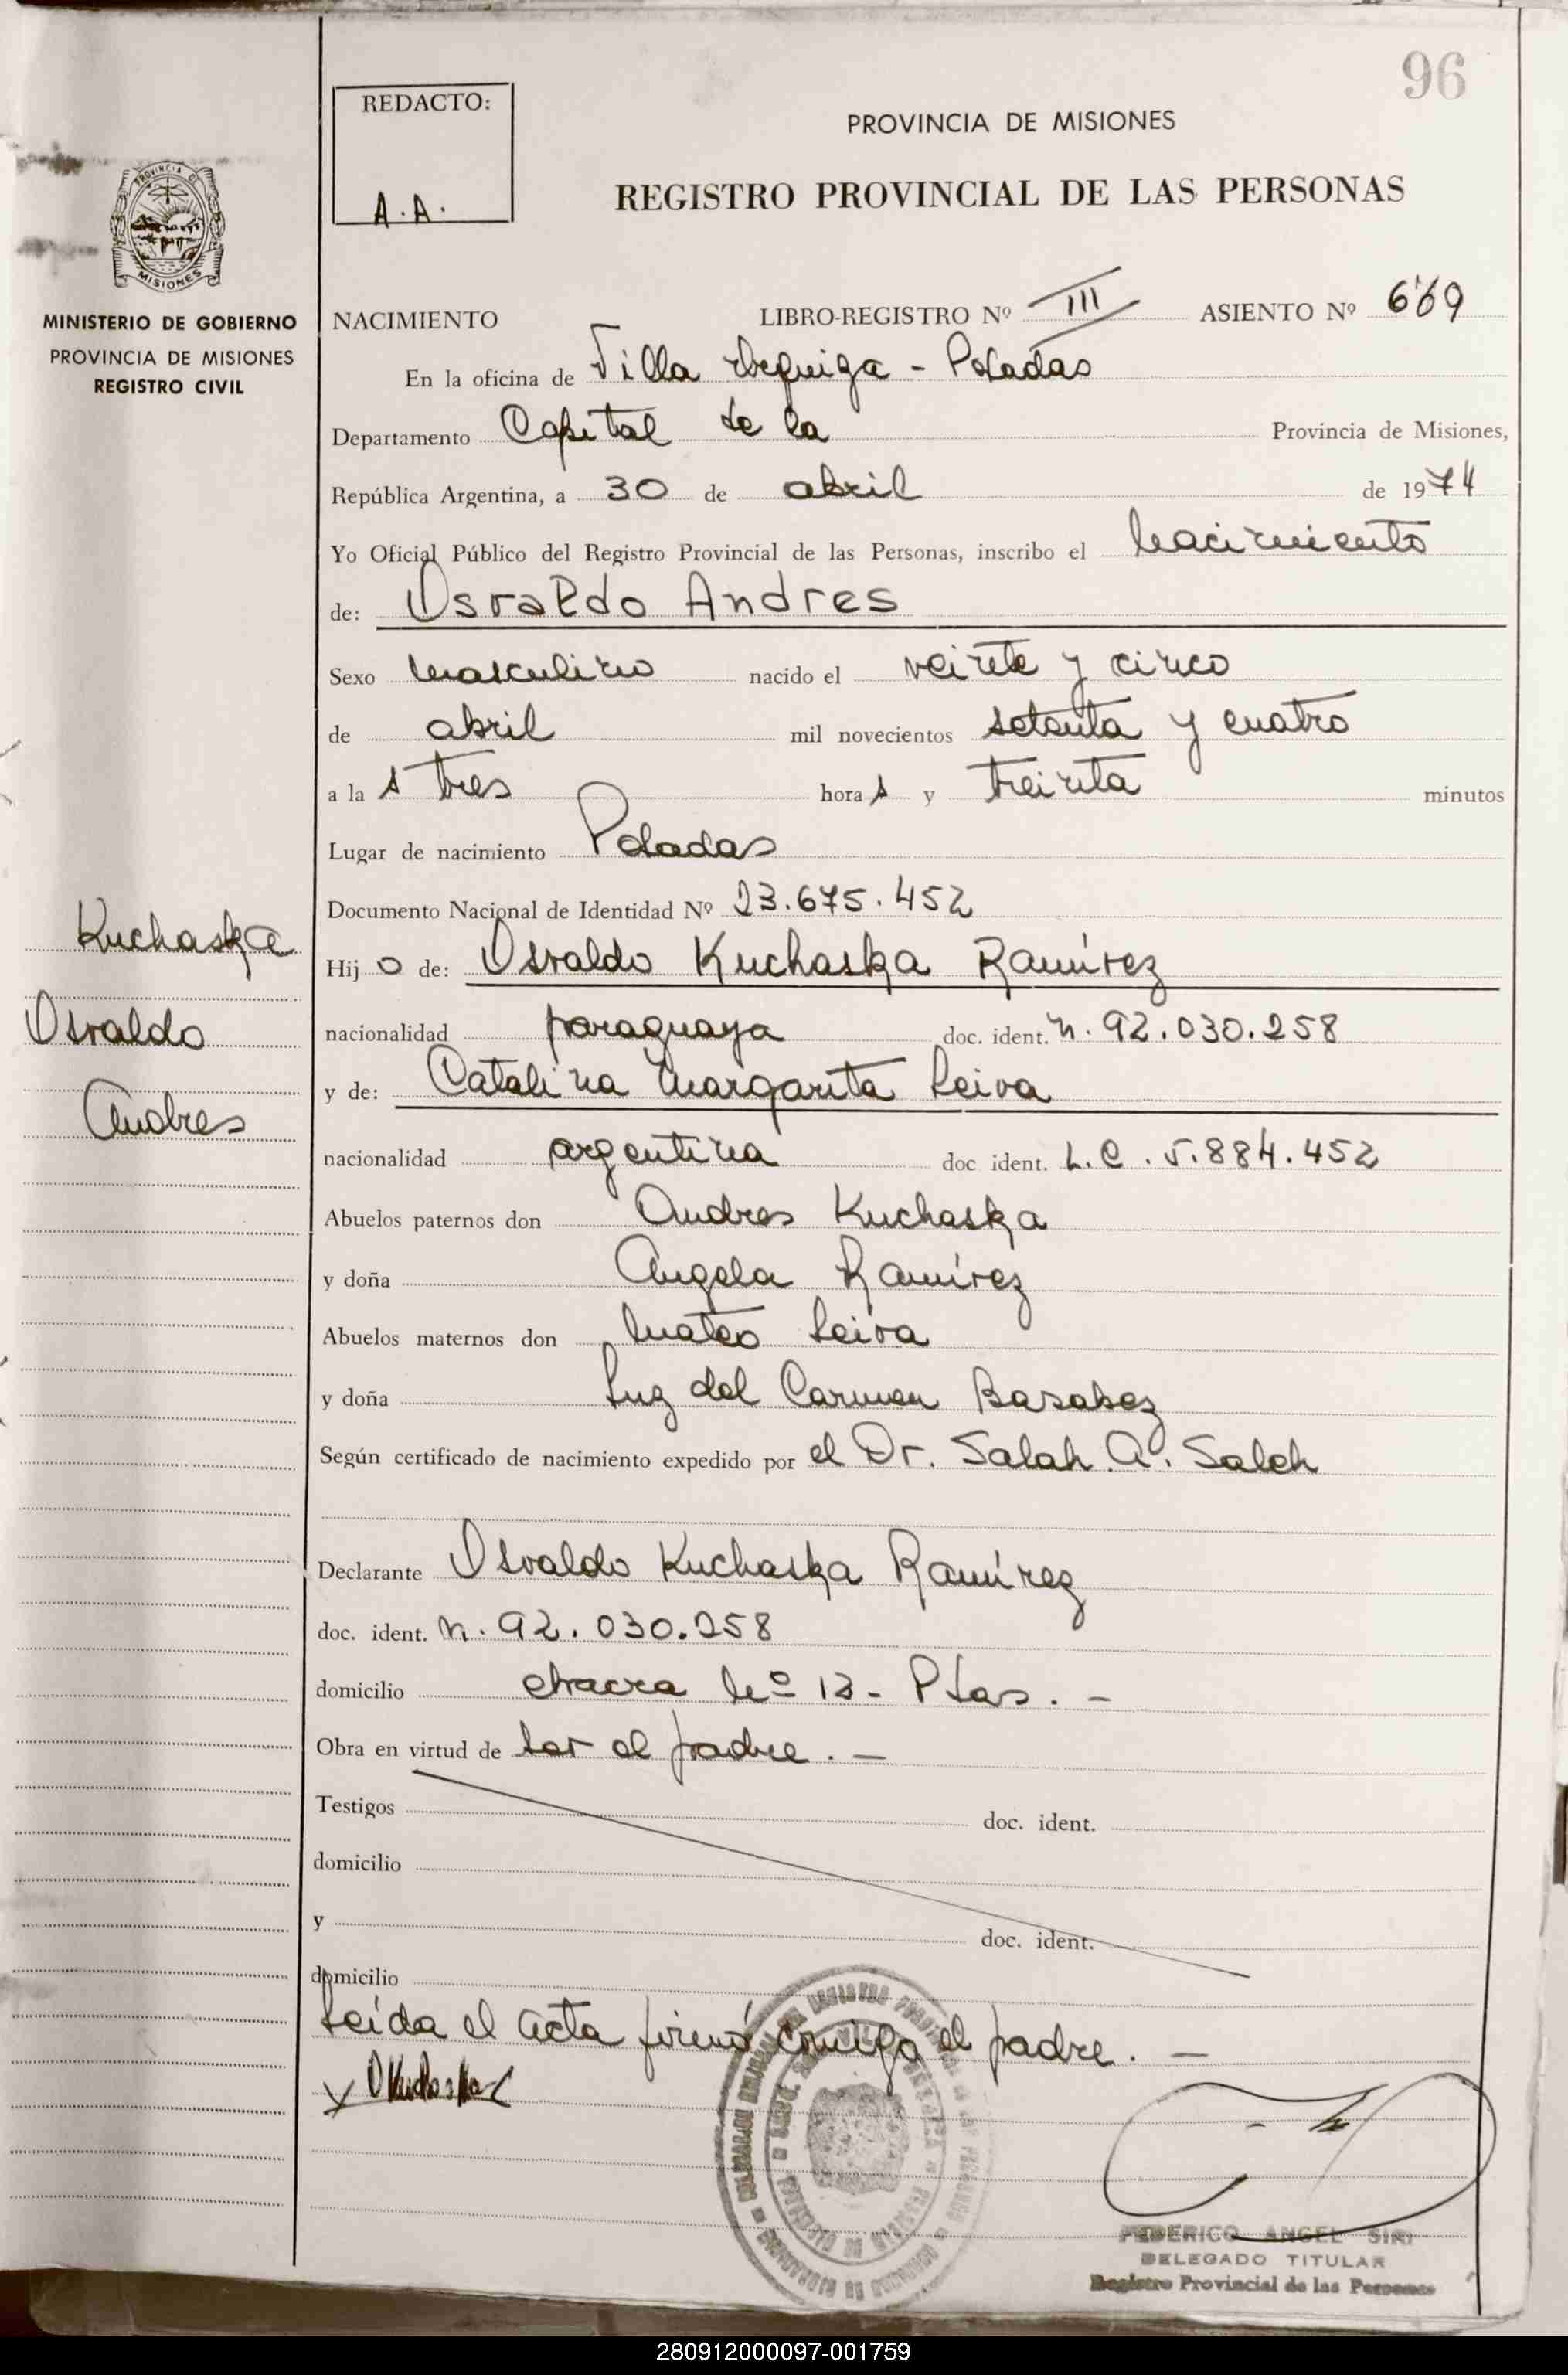 96
REDACTO:
A.A.
PROVINCIA DE MISIONES
REGISTRO PROVINCIAL DE LAS PERSONAS
PROVINCIA DE
MISIONES
MINISTERIO DE GOBIERNO
PROVINCIA DE MISIONES
REGISTRO CIVIL
NACIMIENTO LIBRO-REGISTRO Nº III ASIENTO Nº 669
En la oficina de Villa Urquiza - Posadas
Departamento Capital de la Provincia de Misiones,
República Argentina, a 30 de abril de 1974
Yo Oficial Público del Registro Provincial de las Personas, inscribo el nacimiento
de: Osvaldo Andres
Sexo masculino nacido el veinte y cinco
de abril mil novecientos setenta y cuatro
a la s tres hora s y treinta minutos
Lugar de nacimiento Posadas
Documento Nacional de Identidad Nº 23.675.452
Kuchaska
Osvaldo
Andres
Hij o de: Osvaldo Kuchaska Ramírez
nacionalidad paraguaya doc. ident. n. 92.030.258
y de: Catalina Margarita Leiva
nacionalidad argentina doc ident. L.C. 5.884.452
Abuelos paternos don Andres Kuchaska
y doña Angela Ramírez
Abuelos maternos don Mateo Leiva
y doña Luz del Carmen Basabez
Según certificado de nacimiento expedido por el Dr. Salah A. Saleh
Declarante Osvaldo Kuchaska Ramírez
doc. ident. n. 92.030.258
domicilio chacra Nº 12 - Pdas. -
Obra en virtud de ser el padre. -
Testigos doc. ident.
domicilio
y doc. ident.
domicilio
Leída el acta firmó conmigo el padre. -
FEDERICO ANGEL SIRI
DELEGADO TITULAR
Registro Provincial de las Personas
280912000097-001759